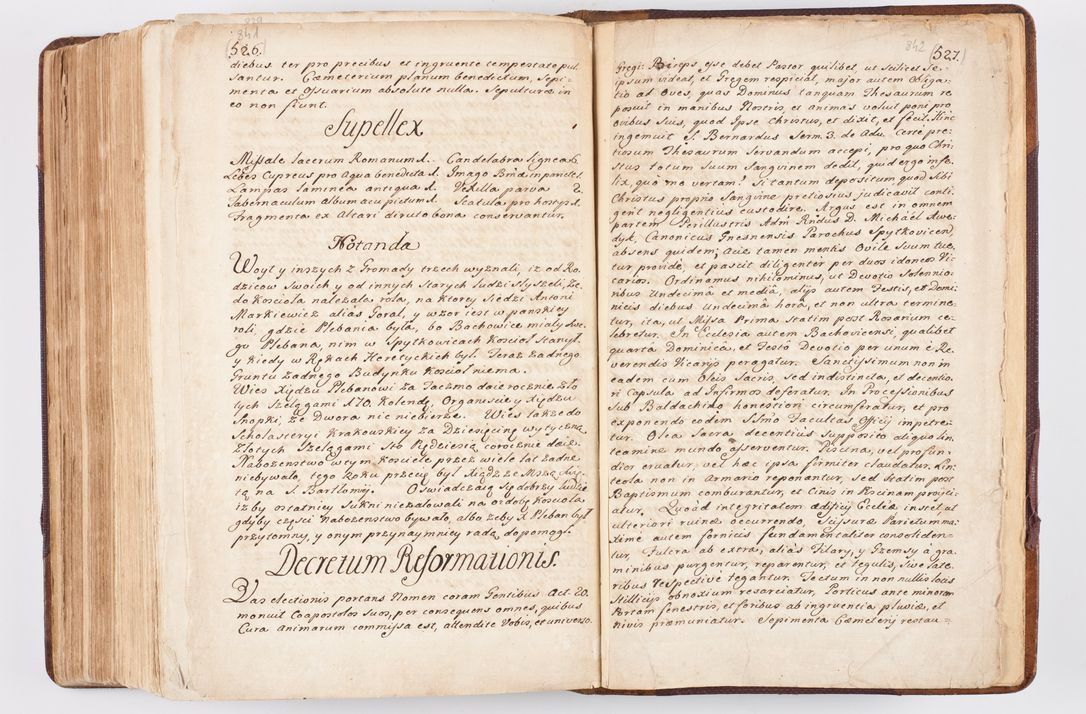 829
841
(526.
diebus ter pro precibus et ingruente tempestate pul
santur. Cæmeterium planum benedictum, Sepi=
menta et Ossuarium absolute nulla. Sepulturæ in
eo non fiunt.
Supellex
Missale lacerum Romanum 1. Candelabra lignea 6.
Lebes Cypreus pro Aqua benedicta 1. Imago in pariete 1.
Lampas laminea antiqua 1. Vexilla parva 2.
Tabernaculum album acu pictum 1. Scatula pro hostijs 1.
Fragmenta ex Altari diruto bona conservantur.
Notanda
Woyt y inszych z Gromady trzech wyznali, iz od Ro
dzicow Swoich y od innych Starych ludzi Slyszeli, ze
do Kosciola nalezala rola, na ktorey Siedzi Antoni
Markiewicz alias Goral, y wzor iest w panskiey
roli, gdzie Plebania byla, bo Bachowice mialy swe=
go Plebana, nim w Spytkowicach Kosciol Stanyl
y kiedy w Rękach Heretyckich był. Teraz zadnego
Gruntu zadnego Budynku Kosciol niema.
Wies Xiędzu Plebanowi za Taczmo daie rocznie zło
tych Szelągami 170. Kolendę, Organiscie y Xiędzu
Snopki, ze Dwora nic niebierze. Wies takze do
Scholasteryi Krakowskiey za Dziesięcinę wytyczną
złotych Szelągami Sto Pędziesią corocznie daie
Nabozenstwo w tym Kosciele przez wiele lat zadne
niebywało, tego Roku przecię był Xiądz ze Mszą Swię
tą na S. Bartlomiy. Oswiadczaią Się dobrzy ludzie
izby ostatniey Sukni niezalowali na ozdobę Kosciola
gdyby częsci nabozenstwo bywało, albo zeby X. Pleban był
przytomny, y onym przynaymniey radą dopomogł.
Decretum Reformationis.
Vas electionis portans Nomen coram Gentibus Act: 20.
monuit Coapostolos Suos, per consequens omnes, quibus
Cura Animarum commissa est, attendite Vobis, et universo
842
(527.
Gregi: esse debet Pastor quilibet, ut scilicet Se=
ipsum videat, et Gregem respiciat, major autem Obliga=
tio ad Oves, quas Dominus tanquam Thesaurum re
posuit in manibus Nostris, et animas voluit poni pro
ovibus Suis, quod Ipse Christus, et dixit, et fecit. Hinc
ingemuit S. Bernardus Serm. 3. de Adv. Certe pre=
tiosum Thesaurum Servandum accepi, pro quo Chri
stus totum Suum Sanguinem dedit, quid ergo infe=
lix, quo me vertam? Si tantum depositum quod Sibi
Christus proprio Sanguine pretiosius judicavit conti
gerit negligentius custodire. Argus est in omnem
partem Perillustris Adm Rndus D. Michäel Awe=
dyk, Canonicus Gnesnensis Parochus Spytkovicen,
absens quidem; Acie tamen mentis Ovile Suum tue,
tur provide, et pascit diligenter per duos idoneos Vi=
carios. Ordinamus nihilominus, ut Devotio Solennio=
ribus Undecimâ et mediâ, alijs autem Festis, et Domi=
nicis diebus Undecimâ horâ, et non ultra termine=
tur, ita, ut Missa Prima Statim post Rosarium ce=
lebretur. In Ecclesia autem Bachovicensi qualibet
quarta Dominica, et Festô Devotio per unum è Re,
verendis Vicarijs peragatur. Sanctissimum non in
eadem cum Oleis Sacris, sed indistincta, et decentio=
ri Capsula ad Infirmos deferatur. In Processionibus
Sub Baldachino honestiori circumferatur, et pro
exponendo eodem SSmo Facultas Officij impetre=
tur. Olea Sacra decentius Supposito aliquo lin
teamine mundo asserventur. Piscina, vel profun=
dior eruatur, vel hæc ipsa firmiter claudatur. Lin
teola non in Armario reponantur, sed statim post
Baptismum comburantur, et Cinis in Piscinam projici=
atur. Quoàd integritatem ædificij Eccleæ instet, ut
ulteriori ruinæ occurrendo, Scissuræ Parietum ma=
ximè autem fornicis fundamentaliter consoliden=
tur. Fulcra ab extra, aliàs Filary, y Gzemsy à gra=
minibus purgentur, reparentur, et tegulis, sive late=
ribus respectivè tegantur. Tectum in non nullis locis
Stillicijs obnoxium resarciatur, Porticus ante minorem
Portam fenestris, et foribus ab ingruentia pluviæ, et
nivis præmuniatur. Sepimenta Cæmeterij restau=